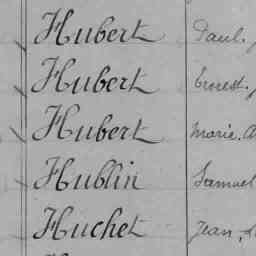 Hubert Paul.
Hubert Ernest.
Hubert Marie. A
Hublin Samuel
Huchet Jean,